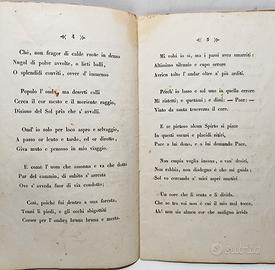 4
Chè, non fragor di calde ruote in denso
Nugol di polve avvolte, o lieti balli,
O splendidi conviti, over d' immenso
Popolo l' onde, ma deserti colli
Cerca il cor mesto e il moriente raggio,
Disioso del Sol pria che s' avvalli.
Ond' io solo per loco aspro e selvaggio,
A passo or lento e tardo, ed or diretto,
Giva muto e pensoso in mio viaggio.
E come l' uom che assonna e va che dotto
Par del cammin, di subito s' arresta
Ove s' avveda fuor di via condotto;
Così, poichè fui dentro a una foresta,
Tenni li piedi, e gli occhi sbigottiti
Corser per l' ombra bruna bruna e mesta.
5
Mi volsi in su, ma i passi avea smarriti:
Altissimo silenzio e cupo orrore
Avrien tolto l' andar oltre a' più arditi.
Prisch' io basso e sol uno in quello errore
Mi ristetti; e quetanni; e dissi: — Pace; —
Vinto dallo disio ch' avea nel core.
E se pietoso alcun Spirto si piace
In questi oscuri e placidi ritiri,
Pace a lui dono, e a lui domando pace.
Non cupida voglia insana, o van' desiri,
Non rabbia, non disdegno è che mi guida;
Sol vo cercando a' miei mali sospiri.
Un core che li senta e li divida,
Che se tra voi con il mio ben non è tolto,
Ah! non sia alcuno cor che maligno irrida
subito.it